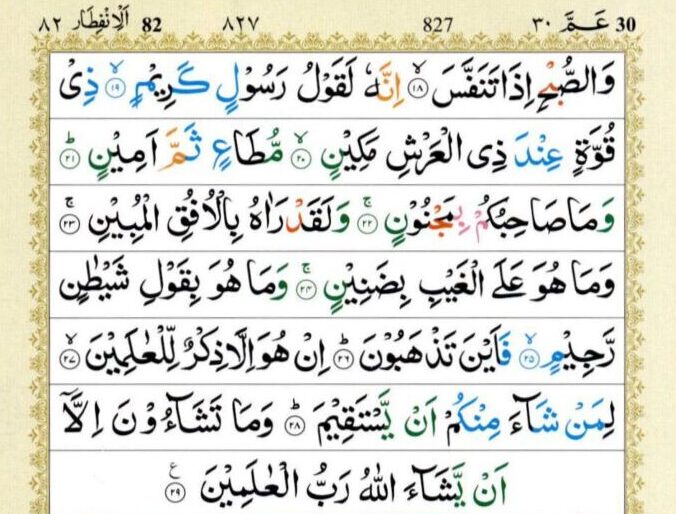 30 عَمَّ ٣٠ 827 ٨٢٧ 82 اَلْاِنْفِطَار ٨٢
وَالصُّبْحِ اِذَا تَنَفَّسَ ۙ‏ ﴿۱۸﴾ اِنَّهٗ لَقَوْلُ رَسُوْلٍ كَرِيْمٍ ۙ‏ ﴿۱۹﴾ ذِىْ
قُوَّةٍ عِنْدَ ذِى الْعَرْشِ مَكِيْنٍ ۙ‏ ﴿۲۰﴾ مُّطَاعٍ ثَمَّ اَمِيْنٍ ؕ‏ ﴿۲۱﴾
وَمَا صَاحِبُكُمْ بِمَجْنُوْنٍ ۚ‏ ﴿۲۲﴾ وَلَقَدْ رَاٰهُ بِالْاُفُقِ الْمُبِيْنِ ۚ‏ ﴿۲۳﴾
وَمَا هُوَ عَلَى الْغَيْبِ بِضَنِيْنٍ ۚ‏ ﴿۲۴﴾ وَمَا هُوَ بِقَوْلِ شَيْطٰنٍ
رَّجِيْمٍ ۙ‏ ﴿۲۵﴾ فَاَيْنَ تَذْهَبُوْنَ ؕ‏ ﴿۲۶﴾ اِنْ هُوَ اِلَّا ذِكْرٌ لِّلْعٰلَمِيْنَ ۙ‏ ﴿۲۷﴾
لِمَنْ شَآءَ مِنْكُمْ اَنْ يَّسْتَقِيْمَ ؕ‏ ﴿۲۸﴾ وَمَا تَشَآءُوْنَ اِلَّاۤ
اَنْ يَّشَآءَ اللّٰهُ رَبُّ الْعٰلَمِيْنَ ﴿۲۹﴾ ع